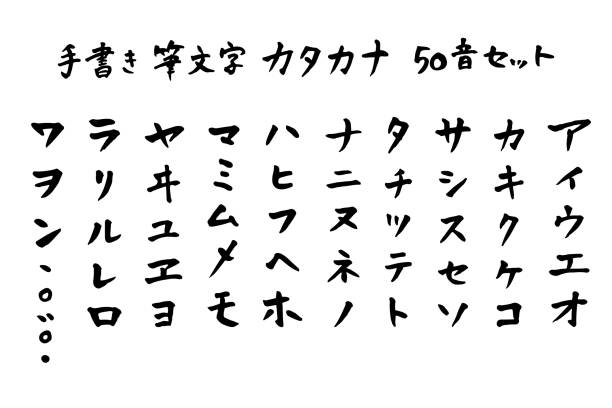 手書き 筆文字 カタカナ 50音セット
アイウエオ
カキクケコ
サシスセソ
タチツテト
ナニヌネノ
ハヒフヘホ
マミムメモ
ヤヰユヱヨ
ラリルレロ
ワヲン、。゛゜・